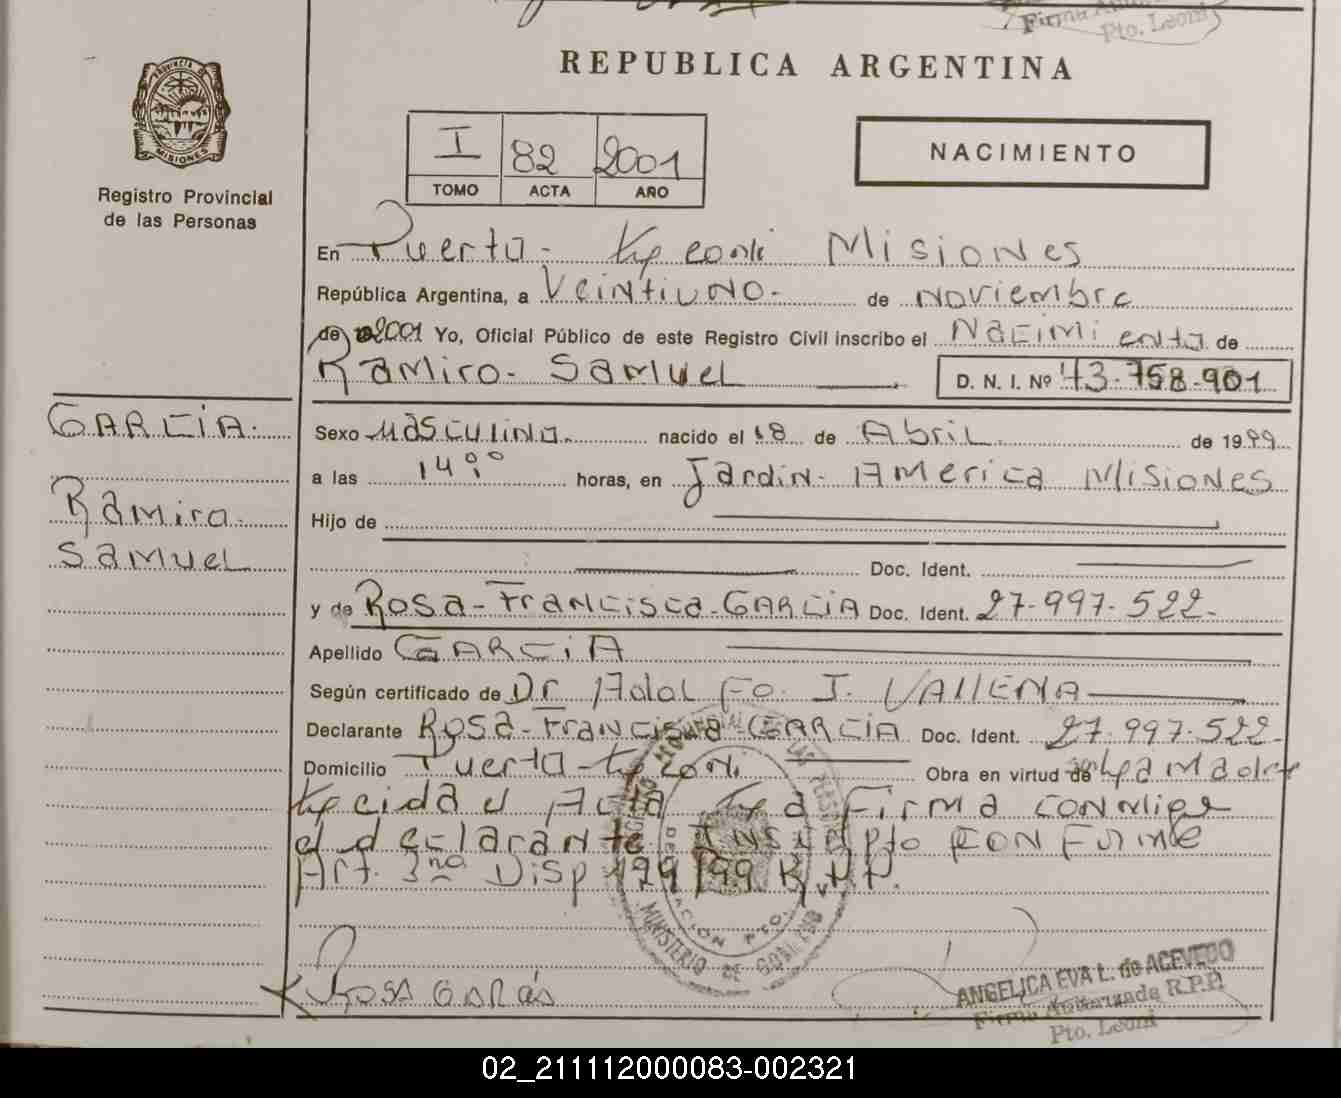 Firma
Pto. Leoni
REPUBLICA ARGENTINA
PROVINCIA DE
MISIONES
I 82 2001
TOMO ACTA AÑO
NACIMIENTO
Registro Provincial
de las Personas
En Puerto - Leoni Misiones
República Argentina, a Veintiuno - de Noviembre
de 2001 Yo, Oficial Público de este Registro Civil inscribo el Nacimiento de
Ramiro - Samuel D. N. I. Nº 43.758.901
GARCIA.
Sexo Masculino. nacido el 18 de Abril de 1999
a las 14°° horas, en Jardin - America Misiones
Ramiro -
Samuel
Hijo de
Doc. Ident.
y de Rosa - Francisca - GARCIA Doc. Ident. 27-997-522-
Apellido GARCIA
Según certificado de Dr Adolfo. I. VAllENA
Declarante Rosa - Francisca - GARCIA Doc. Ident. 27.997.522-
Domicilio Puerto - Leoni Obra en virtud de La Madre
Leida el Acta La Firma conmigo
el declarante Inscripto CONForme
Art. 3ro Disp 179/99 R.P.P.
MINISTERIO DE GOBIERNO
Rosa Garcia
ANGELICA EVA L. de ACEVEDO
Firma Autorizada R.P.P.
Pto. Leoni
02_211112000083-002321